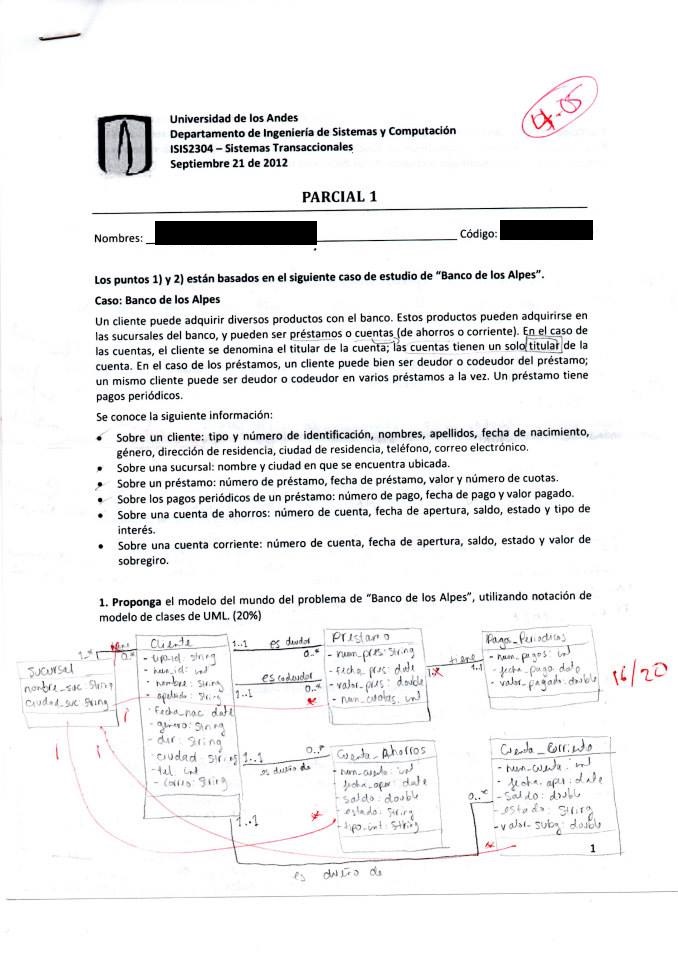 4.05
Universidad de los Andes
Departamento de Ingeniería de Sistemas y Computación
ISIS2304 – Sistemas Transaccionales
Septiembre 21 de 2012
PARCIAL 1
Nombres:
Código:
Los puntos 1) y 2) están basados en el siguiente caso de estudio de “Banco de los Alpes”.
Caso: Banco de los Alpes
Un cliente puede adquirir diversos productos con el banco. Estos productos pueden adquirirse en
las sucursales del banco, y pueden ser préstamos o cuentas (de ahorros o corriente). En el caso de
las cuentas, el cliente se denomina el titular de la cuenta; las cuentas tienen un solo titular de la
cuenta. En el caso de los préstamos, un cliente puede bien ser deudor o codeudor del préstamo;
un mismo cliente puede ser deudor o codeudor en varios préstamos a la vez. Un préstamo tiene
pagos periódicos.
Se conoce la siguiente información:
• Sobre un cliente: tipo y número de identificación, nombres, apellidos, fecha de nacimiento,
género, dirección de residencia, ciudad de residencia, teléfono, correo electrónico.
• Sobre una sucursal: nombre y ciudad en que se encuentra ubicada.
• Sobre un préstamo: número de préstamo, fecha de préstamo, valor y número de cuotas.
• Sobre los pagos periódicos de un préstamo: número de pago, fecha de pago y valor pagado.
• Sobre una cuenta de ahorros: número de cuenta, fecha de apertura, saldo, estado y tipo de
interés.
• Sobre una cuenta corriente: número de cuenta, fecha de apertura, saldo, estado y valor de
sobregiro.
1. Proponga el modelo del mundo del problema de “Banco de los Alpes”, utilizando notación de
modelo de clases de UML. (20%)
Sucursal
nombre_suc: String
ciudad_suc: String
1..*
0..*
Cliente
- tip_id: string
- num_id: int
- nombre: String
- apellido: String
- fecha_nac: date
- genero: String
- dir: String
- ciudad: String
- tel: int
- correo: String
1..1
es deudor
0..*
es codeudor
1..1
0..*
Prestamo
- num_pres: String
- fecha_pres: date
- valor_pres: double
- num_cuotas: int
1
*
tiene
1..1
Pagos_Periodicos
- num_pagos: int
- fecha_pago: date
- valor_pagado: double
16/20
1..1
es dueño de
0..*
Cuenta_Ahorros
- num_cuenta: int
- fecha_aper: date
- saldo: double
- estado: String
- tipo_int: String
*
Cuenta_Corriente
- num_cuenta: int
- fecha_aper: date
- saldo: double
- estado: String
- valor_sobg: double
0..*
*
1..1
es dueño de
1
1
1
1